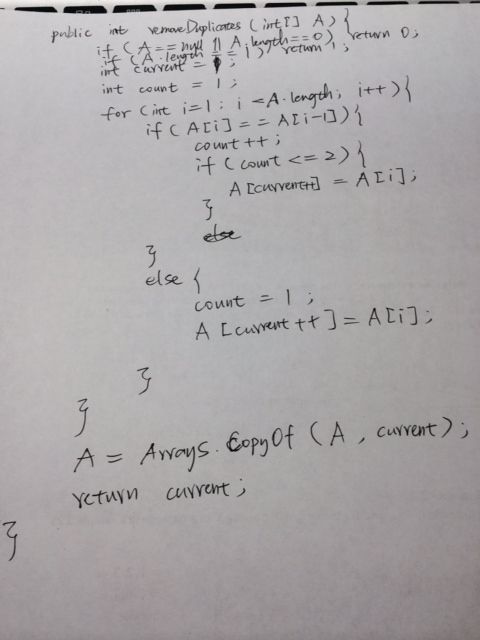 public int removeDuplicates (int[] A) {
if (A == null || A.length == 0) return 0;
if (A.length == 1) return 1;
int current = 1;
int count = 1;
for (int i=1; i <A.length; i++){
if (A[i] == A[i-1]){
count++;
if (count <=2){
A[current++] = A[i];
}
else
}
else {
count = 1;
A [current++] = A[i];
}
}
A = Arrays.copyOf (A, current);
return current;
}